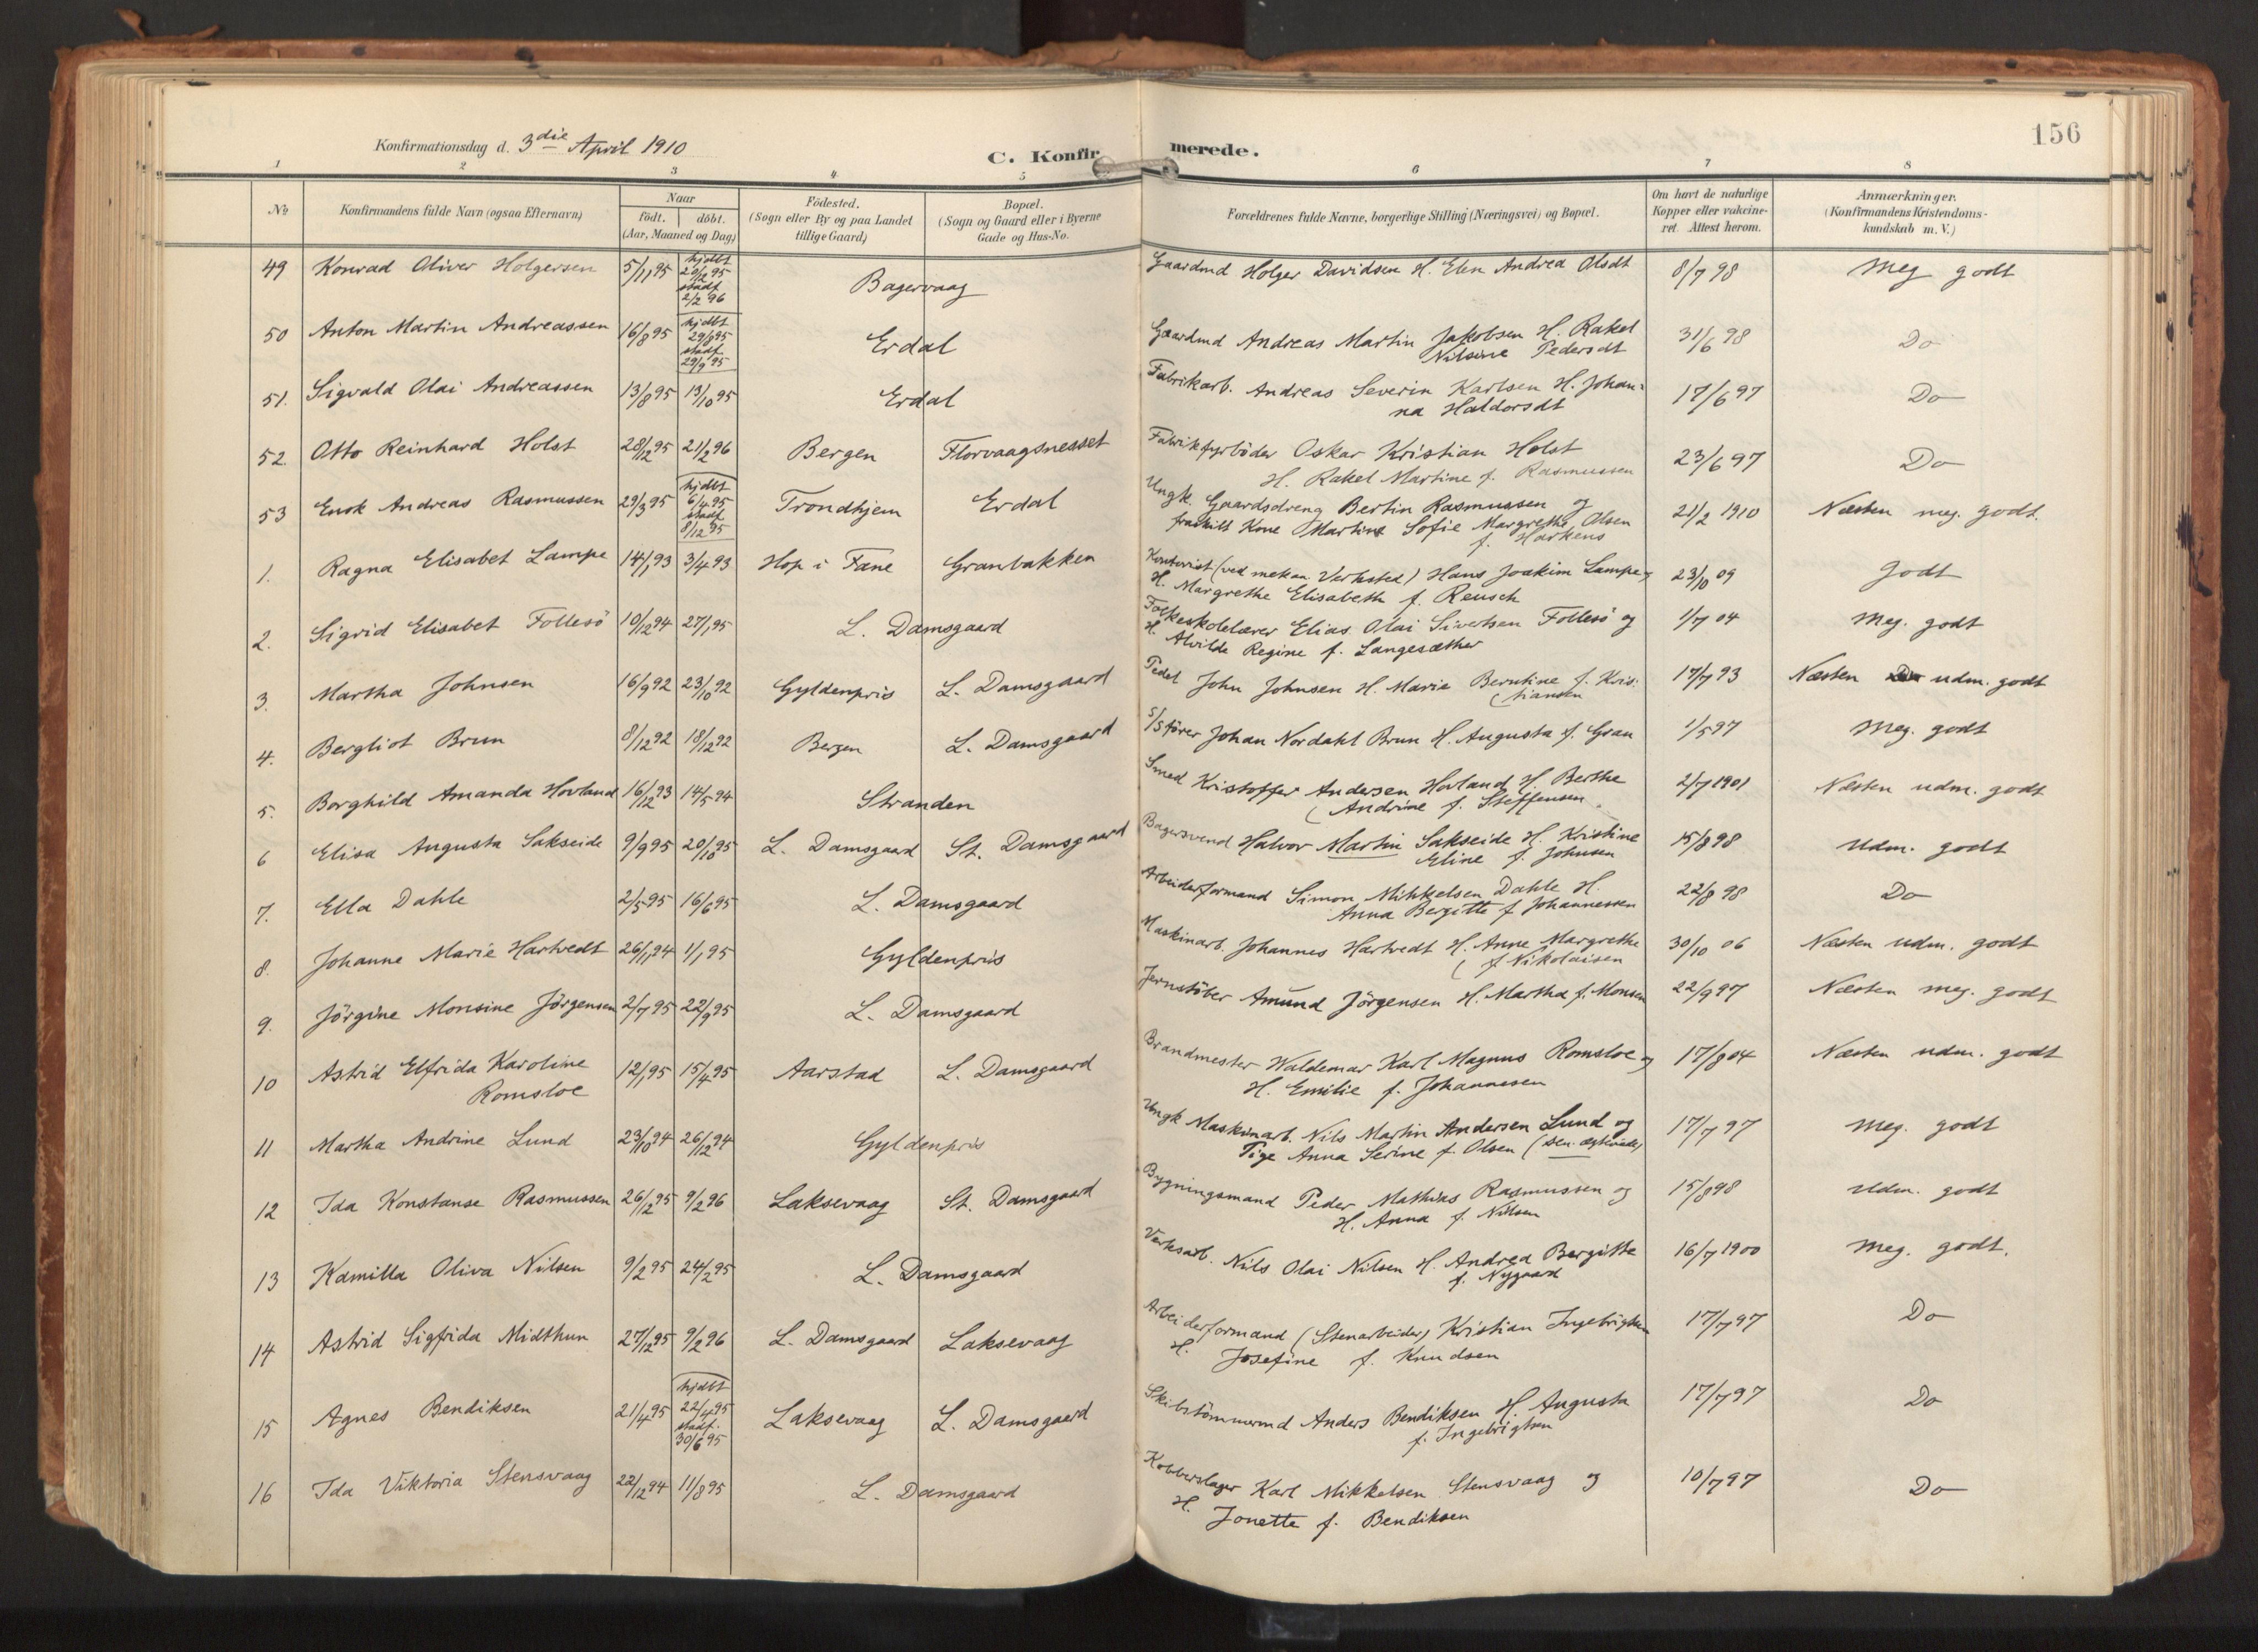 156
Konfirmationsdag d. 3die April 1910
C. Konfirmerede.
1 2 3 4 5 6 7 8
No Konfirmandens fulde Navn (ogsaa Efternavn) Naar födt. döbt. (Aar, Maaned og Dag) Födested. (Sogn eller By og paa Landet tillige Gaard) Bopæl. (Sogn og Gaard eller i Byerne Gade og Hus-No. Forældrenes fulde Navne, borgerlige Stilling (Næringsvei) og Bopæl. Om havt de naturlige Kopper eller vakcineret. Attest herom. Anmærkninger. (Konfirmandens Kristendomskundskab m. V.)
49 Konrad Oliver Holgersen 5/11 95 hjdbt 29/12 95 stadf 2/2 96 Bagervaag Gaardmd Holger Davidsen H. Elen Andrea Olsdt 8/7 98 Meg godt
50 Anton Martin Andreassen 16/8 95 hjdbt 29/8 95 stadf 29/9 95 Erdal Gaardmd Andreas Martin Jakobsen H. Rakel
Nilsine Pedersdt 31/6 98 Do
51. Sigvald Olai Andreassen 13/8 95 13/10 95 Erdal Fabrikarb. Andreas Severin Karlsen H. Johan-
na Haldorsdt 17/6 97 Do
52. Otto Reinhard Holst 28/12 95 21/2 96 Bergen Florvaagsnesset Fabrikfyrböder Oskar Kristian Holst
H. Rakel Martine f. Rasmussen 23/6 97 Do
53 Enok Andreas Rasmussen 29/3 95 hjdbt 6/4 95 stadf 8/12 95 Trondhjem Erdal Ungk. Gaardsdreng Bertin Rasmussen og
fraskilt Kone Martine Sofie Margrethe Olsen
f. Harkens 21/2 1910 Næsten meg. godt.
1. Ragna Elisabet Lampe 14/1 93 3/4 93 Hop i Fane Granbakken Kontorist (ved mekan. Verksted) Hans Joakim Lampe og
H. Margrethe Elisabeth f. Reusch 23/10 09 Godt
2. Sigrid Elisabet Follesö 10/12 94 27/1 95 L. Damsgaard Folkeskolelærer Elias Olai Sivertsen Follesö og
H. Alvilde Regine f. Langesæther 1/7 04 Meg. godt
3. Martha Johnsen 16/9 92 23/10 92 Gyldenpris L. Damsgaard Pedel John Johnsen H. Marie Berntine f. Kris-
(tiansen 17/7 93 Næsten udm. godt
4. Bergliot Brun 8/12 92 18/12 92 Bergen L. Damsgaard S/S förer Johan Nordahl Brun H. Augusta f. Gran 1/5 97 Meg. godt
5. Borghild Amanda Hovland 16/12 93 14/5 94 Stranden Smed Kristoffer Andersen Hovland H. Berthe
(Andrine f. Steffensen 2/7 1901 Næsten udm. godt
6 Elisa Augusta Sakseide 9/9 95 20/10 95 L. Damsgaard St. Damsgaard Bagersvend Halvor Martin Sakseide H. Kristine
Eline f. Johnsen 15/8 98 Udm. godt
7. Ella Dahle 2/5 95 16/6 95 L. Damsgaard Arbeiderformand Simon Mikkelsen Dahle H.
Anna Bergitte f Johannessen 22/8 98 Do
8. Johanne Marie Hartvedt 26/11 94 1/1 95 Gyldenpris Maskinarb. Johannes Hartvedt H. Anne Margrethe
(f Nikolaisen 30/10 06 Næsten udm. godt
9. Jörgine Monsine Jörgensen 2/7 95 22/9 95 L. Damsgaard Jernstöber Amund Jörgensen H. Martha f. Monsen 22/9 97 Næsten meg. godt
10 Astrid Elfrida Karoline
Romsloe 12/1 95 15/4 95 Aarstad L. Damsgaard Brandmester Waldemar Karl Magnus Romsloe og
H. Emilie f. Johannesen 17/8 04 Næsten udm. godt
11 Martha Andrine Lund 23/10 94 26/12 94 Gyldenpris Ungk Maskinarb. Nils Martin Andersen Lund og
Pige Anna Serine f. Olsen (sen. ægteviede) 17/7 97 Meg. godt
12 Ida Konstanse Rasmussen 26/12 95 9/2 96 Laksevaag St. Damsgaard Bygningsmand Peder Mathias Rasmussen og
H. Anna f. Nilsen 15/8 98 Udm. godt
13 Kamilla Oliva Nilsen 9/2 95 24/2 95 L. Damsgaard Verksarb. Nils Olai Nilsen H. Andrea Bergitte
f. Nygaard 16/7 1900 Meg. godt.
14 Astrid Sigfrida Midthun 27/12 95 9/2 96 L. Damsgaard Laksevaag Arbeiderformand (Stenarbeider) Kristian Ingebrigtsen
H. Josefine f. Knudsen 17/7 97 Do
15 Agnes Bendiksen 21/4 95 hjdbt 22/4 95 stadf. 30/6 95 Laksevaag L. Damsgaard Skibstömmermd Anders Bendiksen H. Augusta
f. Ingebrigtsen 17/7 97 Do
16 Ida Viktoria Stensvaag 22/12 94 11/8 95 L. Damsgaard Kobberslager Karl Mikkelsen Stensvaag og
H. Jonette f. Bendiksen 10/7 97 Do